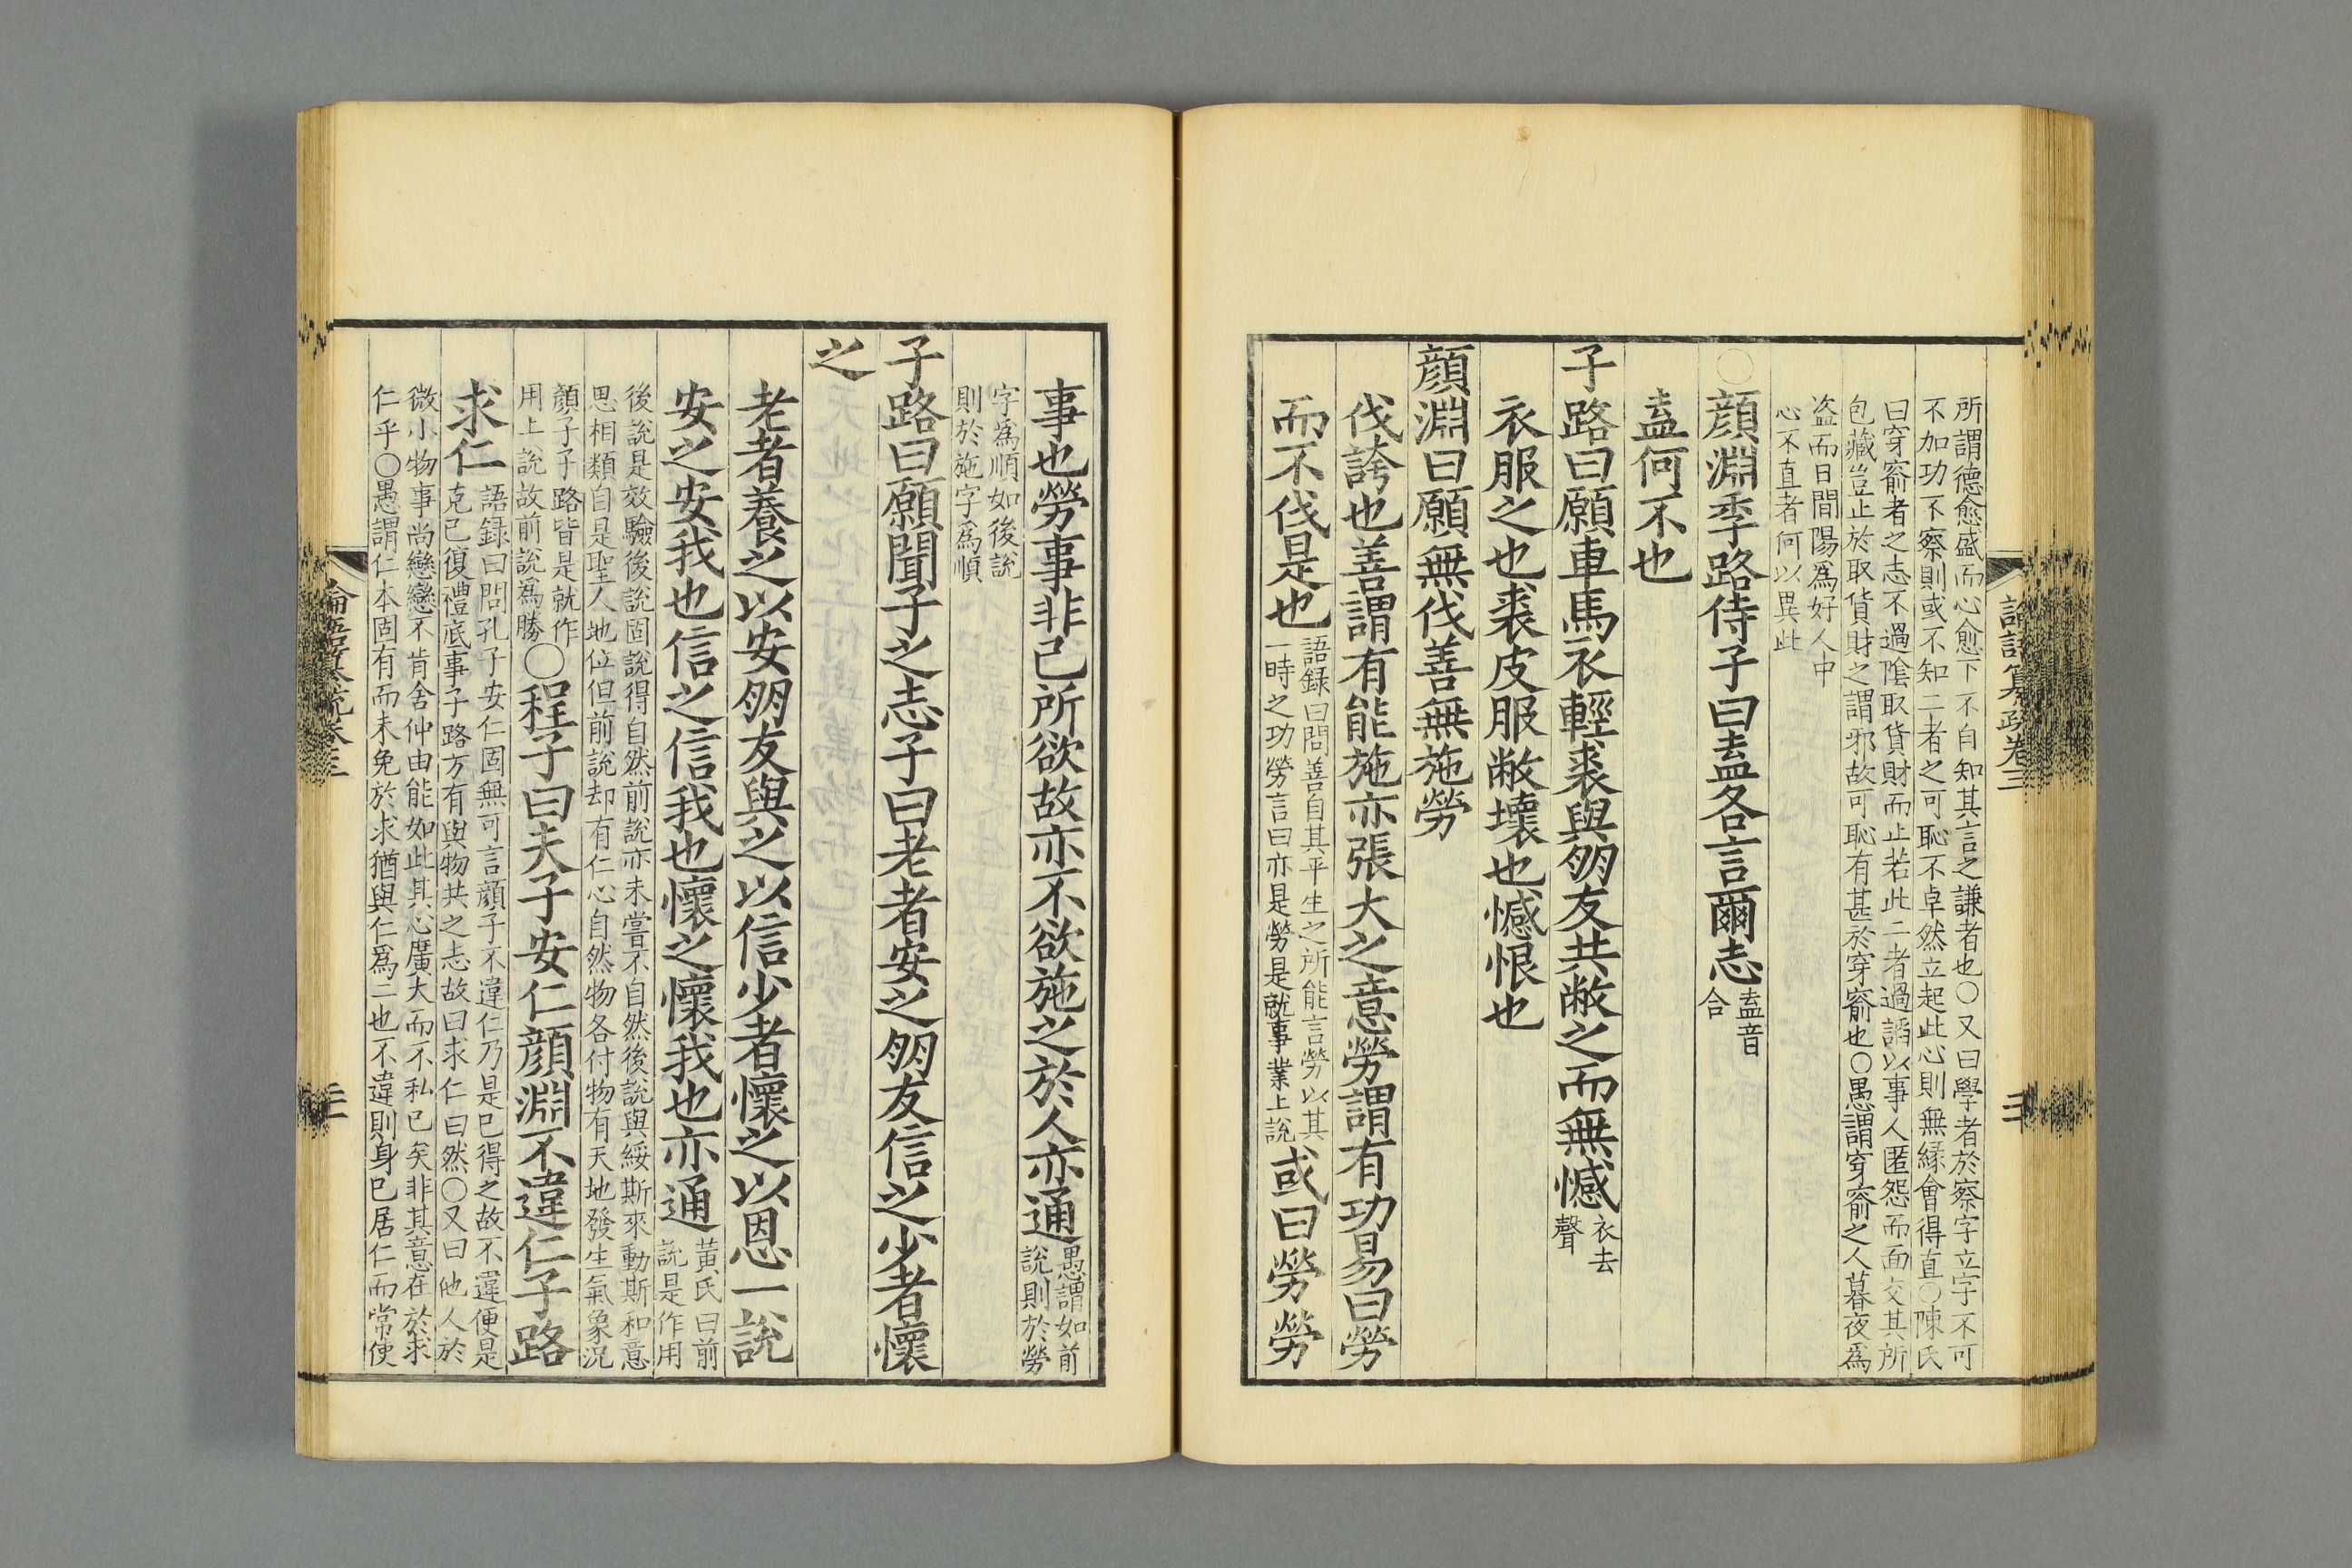 所謂德愈盛而心愈下不自知其言之謙者也○又曰學者於察字立字不可
不加功不察則或不知二者之可恥不卓然立起此心則無緣會得直○陳氏
曰穿窬者之志不過陰取貨財而止若此二者過謟以事人匿怨而面交其所
包藏豈止於取貨財之謂邪故可恥有甚於穿窬也○愚謂穿窬之人暮夜爲
盗而日間陽爲好人中
心不直者何以異此
○顏淵季路侍子曰盍各言爾志
盍音
合
盍何不也
子路曰願車馬衣輕裘與朋友共敝之而無憾
衣去
聲
衣服之也裘皮服敝壞也憾恨也
顏淵曰願無伐善無施勞
伐誇也善謂有能施亦張大之意勞謂有功易曰勞
而不伐是也
語錄曰問善自其平生之所能言勞以其
一時之功勞言曰亦是勞是就事業上說
或曰勞勞
論語纂疏卷三
二十
事也勞事非己所欲故亦不欲施之於人亦通
愚謂如前
說則於勞
字爲順如後說
則於施字爲順
子路曰願聞子之志子曰老者安之朋友信之少者懷
之
老者養之以安朋友與之以信少者懷之以恩一說
安之安我也信之信我也懷之懷我也亦通
黃氏曰前
說是作用
後說是效驗後說固說得自然前說亦未嘗不自然後說與綏斯來動斯和意
思相類自是聖人地位但前說却有仁心自然物各付物有天地發生氣象況
顏子子路皆是就作
用上說故前說爲勝
○程子曰夫子安仁顏淵不違仁子路
求仁
語録曰問孔子安仁固無可言顏子不違仁乃是已得之故不違便是
克己復禮底事子路方有與物共之志故曰求仁曰然○又曰他人於
微小物事尚戀戀不肯舍仲由能如此其心廣大而不私己矣非其意在於求
仁乎○愚謂仁本固有而未免於求猶與仁爲二也不違則身已居仁而常使
論語纂疏卷三